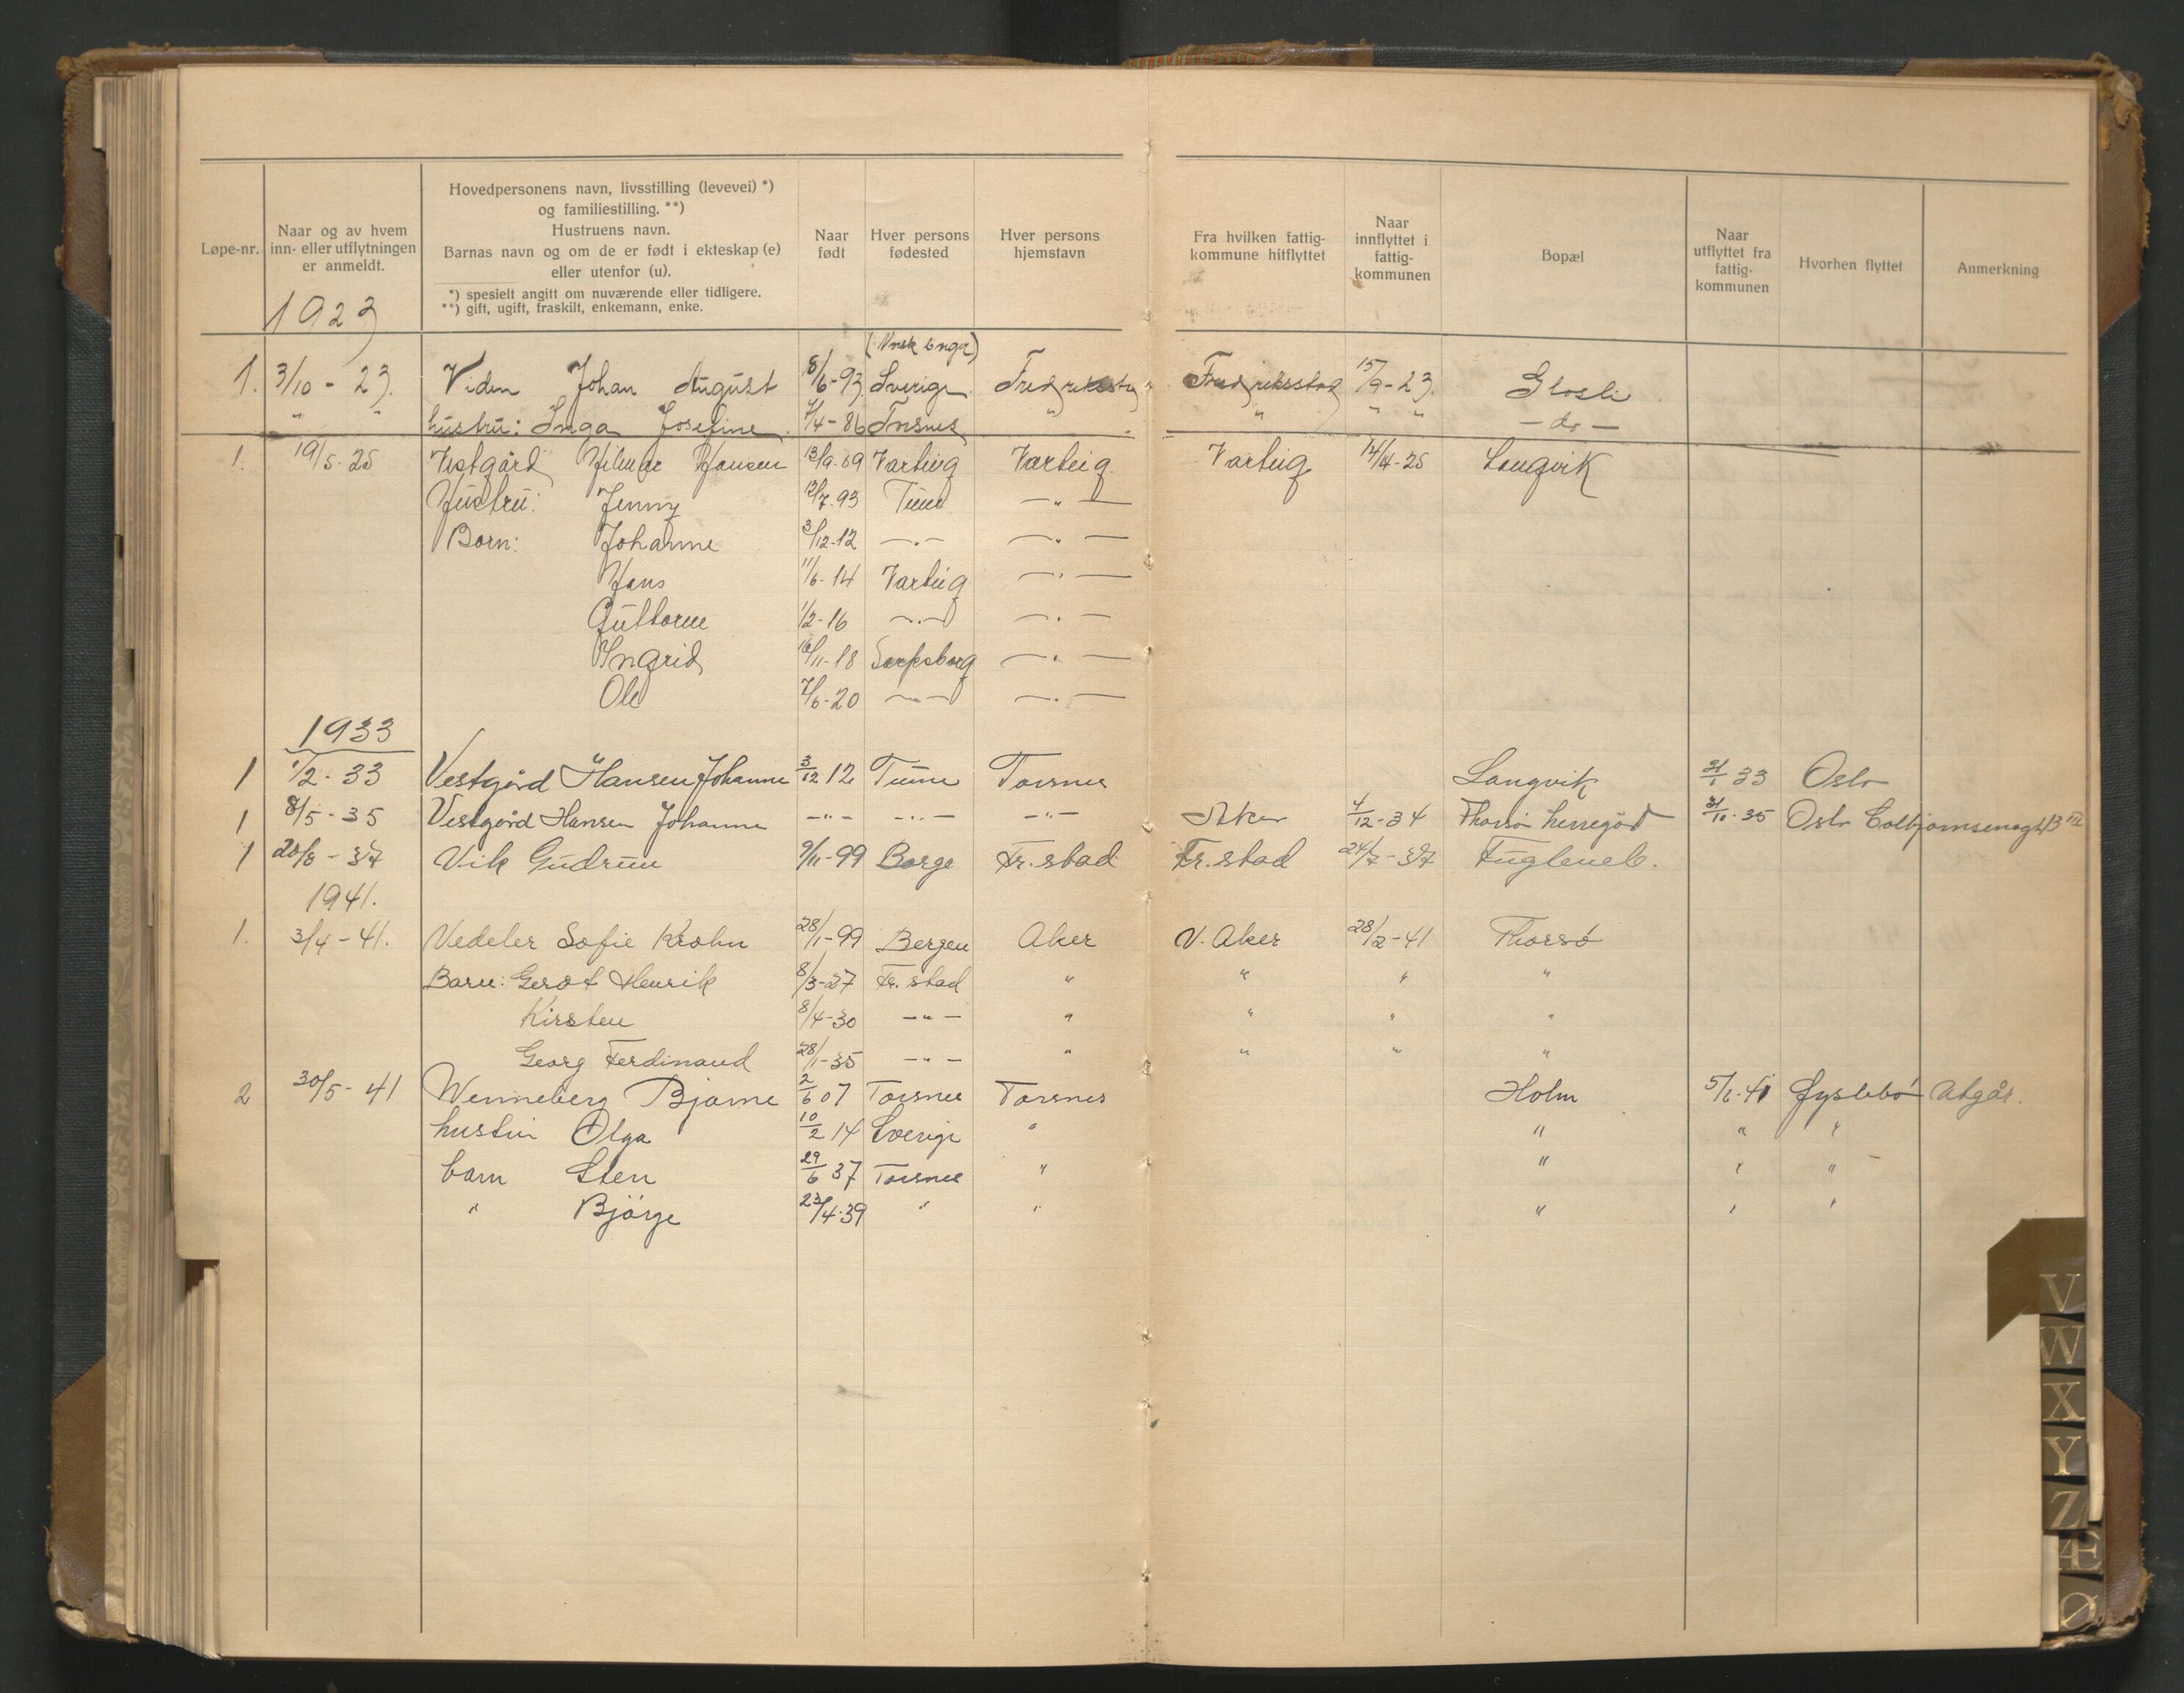 Løpe-nr.
Naar og av hvem inn- eller utflytningen er anmeldt.
Hovedpersonens navn, livsstilling (levevei) *) og familiestilling. **)
Hustruens navn.
Barnas navn og om de er født i ekteskap (e) eller utenfor (u).
*) spesielt angitt om nuværende eller tidligere.
**) gift, ugift, fraskilt, enkemann, enke.
Naar født
Hver persons fødested
Hver persons hjemstavn
Fra hvilken fattig-kommune hitflyttet
Naar innflyttet i fattig-kommunen
Bopæl
Naar utflyttet fra fattig-kommunen
Hvorhen flyttet
Anmerkning
1923
1. 3/10 - 23. Viden Johan August 8/6-93. Sverige. Fredriksstad Fredriksstad 15/9-23. Glosli
" " hustru: Inga Josefine 7/4-86 Torsnes " " " " - do -
1. 19/5-25 Vestgård Hilmar Hansen 13/9-89 Varteig Varteig Varteig 14/4-25 Langvik
Hustru: Jenny 12/7-93 Tune - " -
Barn: Johanne 3/12-12 - " - - " -
Hans 11/6-14 Varteig - " -
Guttorm 1/2-16 - " - - " -
Ingrid 16/11-18 Sarpsborg - " -
Ole 7/6-20 - " - - " -
1933
1 1/2-33 Vestgård Hansen Johanne 3/12 12 Tune Torsnes Langvik 31/1 33 Oslo
1 8/5-35 Vestgård Hansen Johanne - " - - " - - " - Aker 4/12-34 Thorsø herregård 31/10-35 Oslo
1 20/8-37 Vik Gudrun 9/11-99 Borge Fr.stad Fr.stad 24/7-37 Fuglevik.
1941.
1. 3/4-41. Vedeler Sofie Krohn 28/1-99 Bergen Aker V. Aker 28/2-41 Thorsø
Barn: Gerdt Henrik 8/3-27 Fr. stad " " " "
Kirsten 8/4-30 - " - " " " "
Georg Ferdinand 28/1-35 - " - " " " "
2 30/5-41 Wenneberg Bjarne 2/6 07 Torsnes Torsnes Holm 41 Øyslebø Avgår.
hustru Olga 10/2 14 Sverige " " " "
barn Sten 29/6 37 Torsnes " " " "
" Bjørge 23/4-39 " " " " "
V
W
X
Y
Z
Æ
Ø